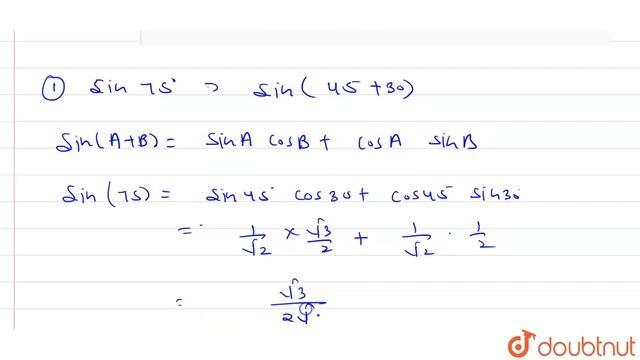 ① Sin 75° ⇒ Sin( 45 +30)
Sin(A+B) = sinA cosB + cosA sinB
Sin(75) = sin45° cos30 + cos45° sin30
= 1/√2 × √3/2 + 1/√2 · 1/2
= √3/2√
doubtnut